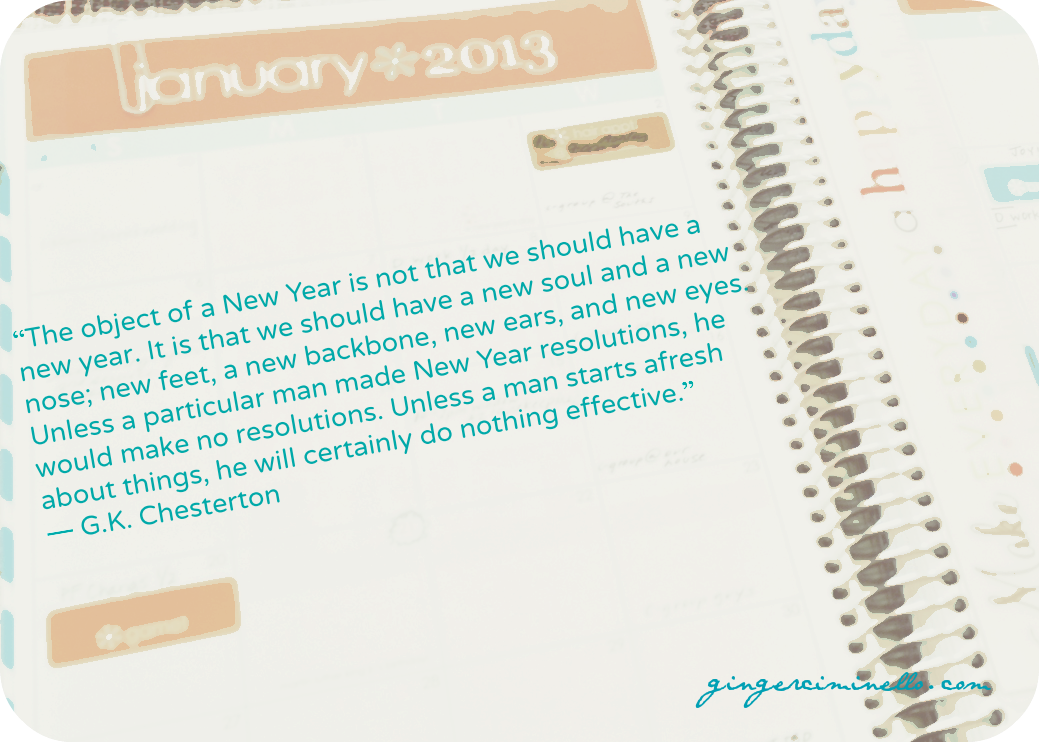 january 2013
“The object of a New Year is not that we should have a
new year. It is that we should have a new soul and a new
nose; new feet, a new backbone, new ears, and new eyes.
Unless a particular man made New Year resolutions, he
would make no resolutions. Unless a man starts afresh
about things, he will certainly do nothing effective.”
— G.K. Chesterton
gingerciminello.com